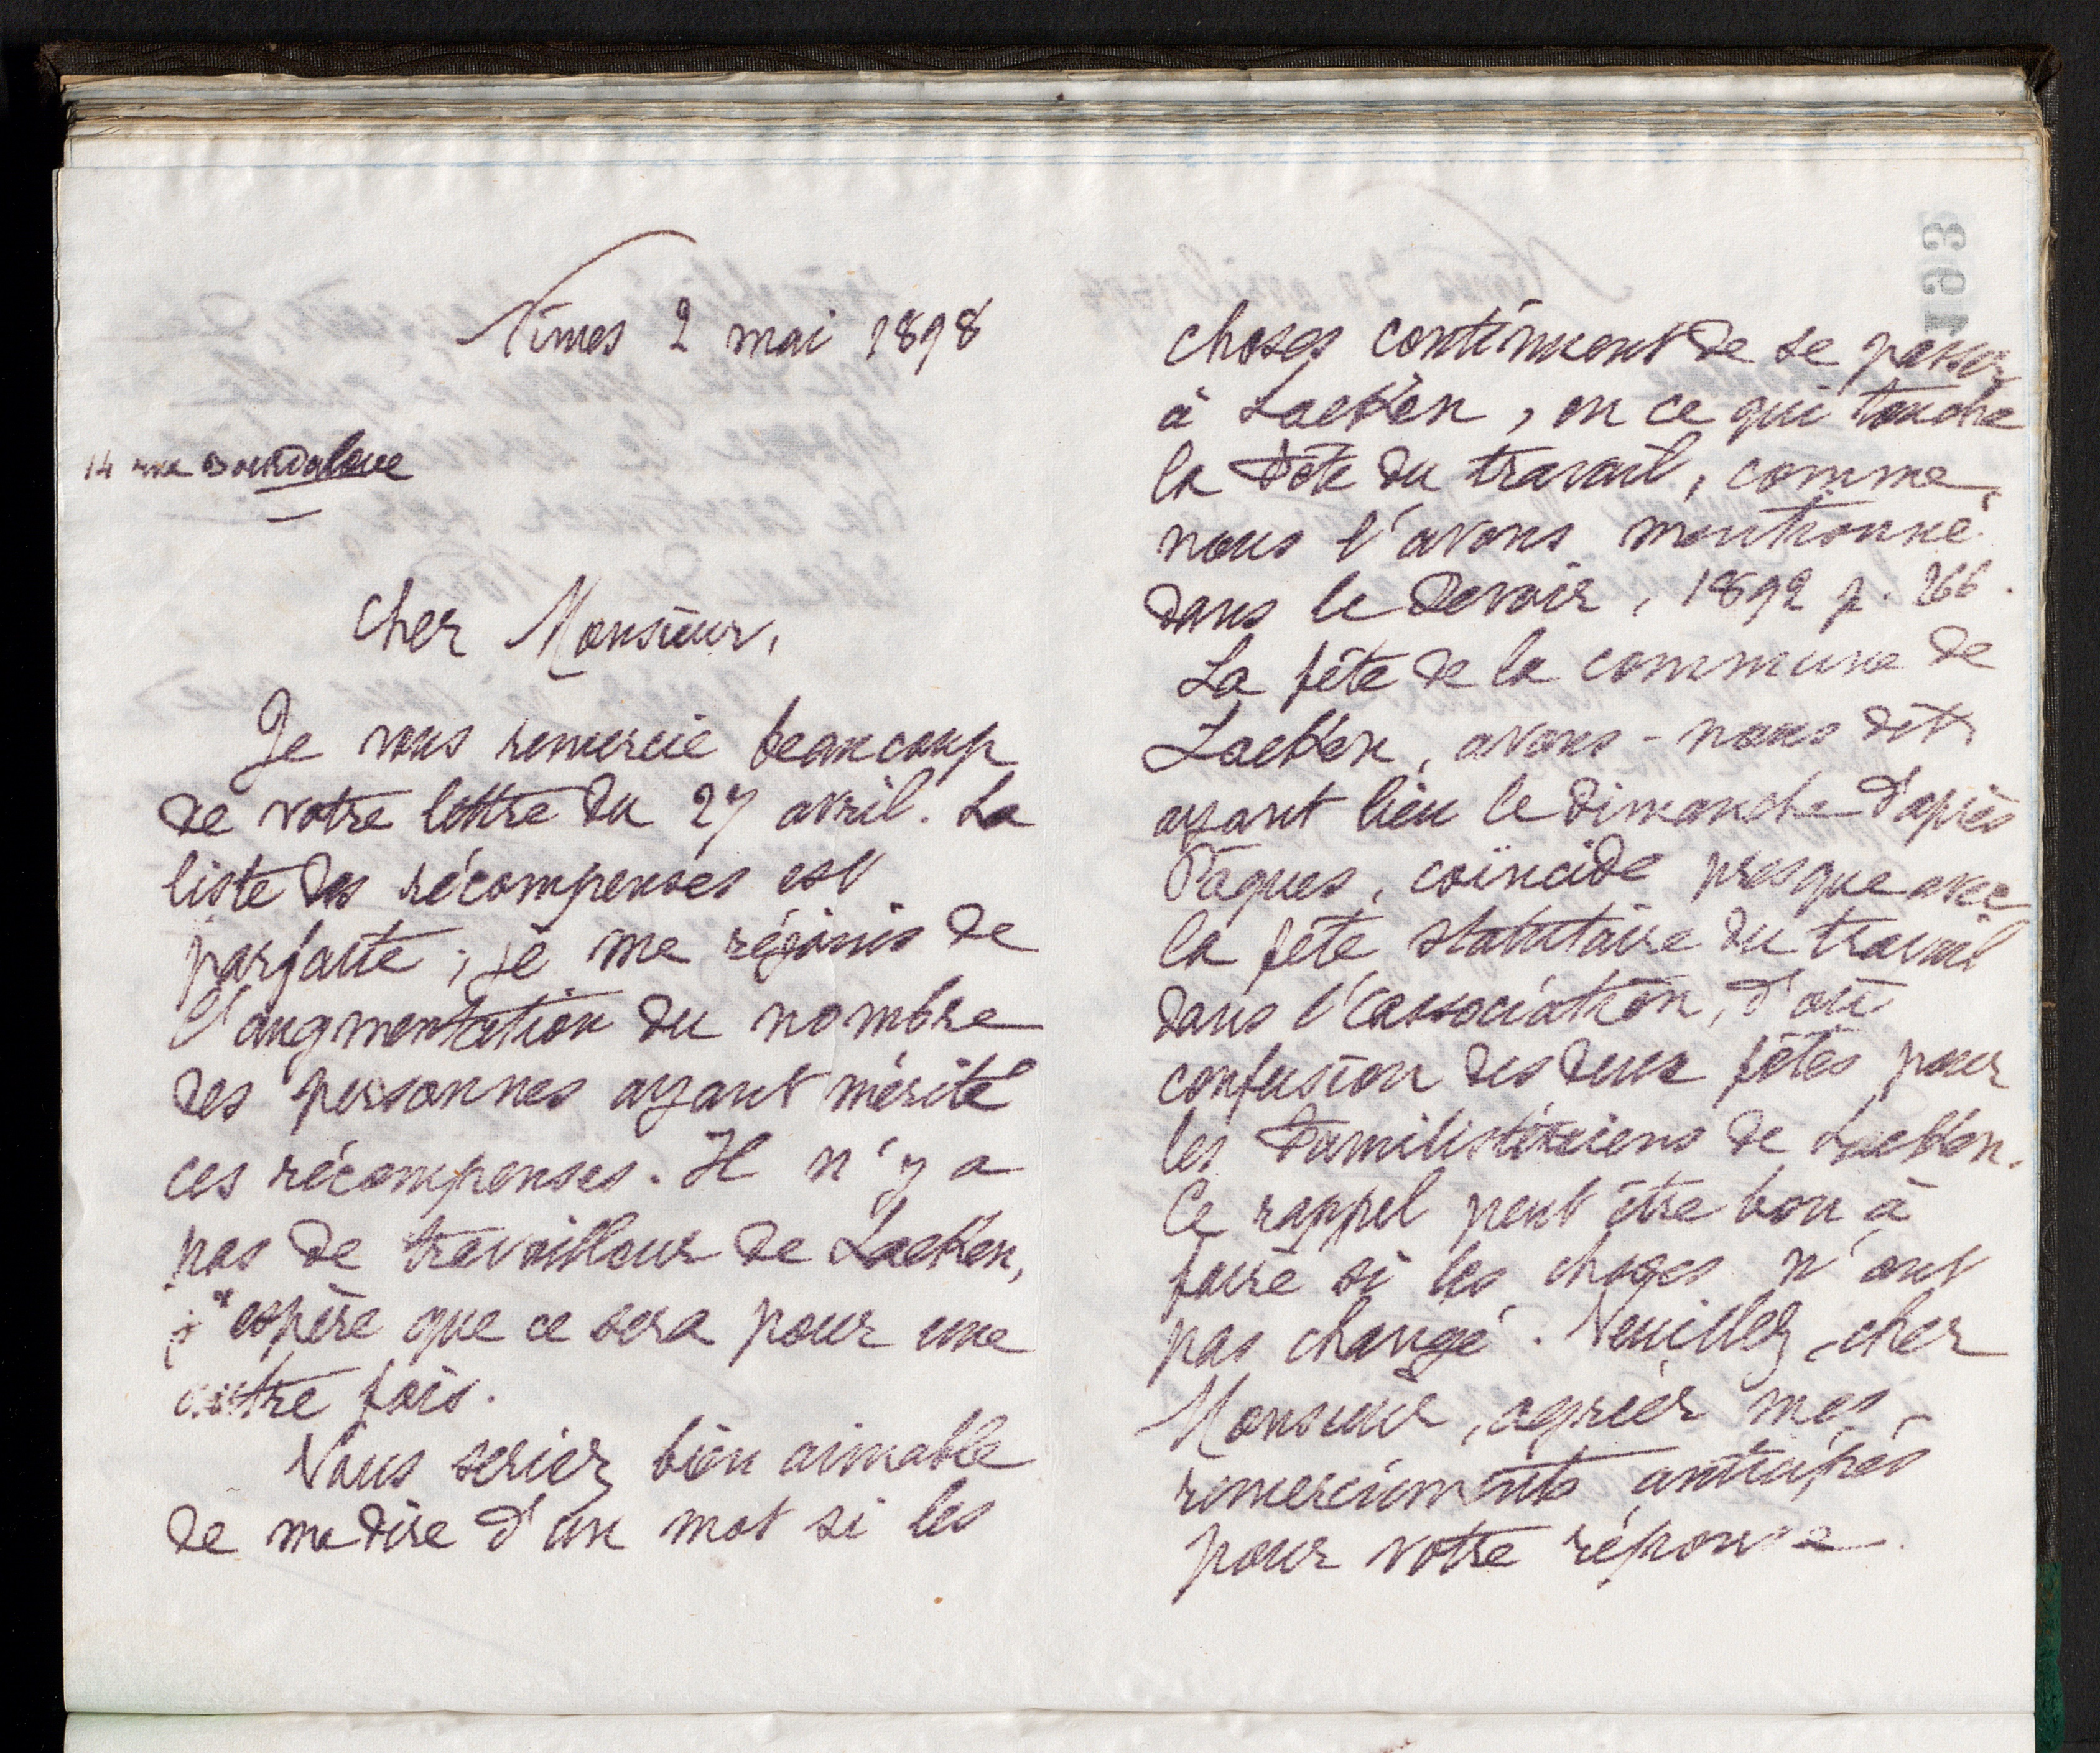 Nîmes 2 mai 1898
14 rue Bourdaloue
Cher Monsieur,
Je vous remercie beaucoup
de votre lettre du 27 avril. La
liste des récompenses est
parfaite ; je me réjouis de
l'augmentation du nombre
des personnes ayant mérité
ces récompenses. Il n'y a
pas de travailleur de Laeken,
j'espère que ce sera pour une
autre fois.
Vous seriez bien aimable
de me dire d'un mot si les
choses continuent de se passer
à Laeken, en ce qui touche
la Fête du travail, comme
nous l'avons mentionné
dans le Devoir, 1892 p. 266.
La fête de la commune de
Laeken, avons-nous dit,
ayant lieu le dimanche d'après
Pâques, coïncide presque avec
la fête statutaire du travail
dans l'association, d'où
confusion des deux fêtes pour
les Familistériens de Laeken.
Ce rappel peut être bon à
faire si les choses n'ont
pas changé. Veuillez, cher
Monsieur, agréer mes
remerciements anticipés
pour votre réponse
193